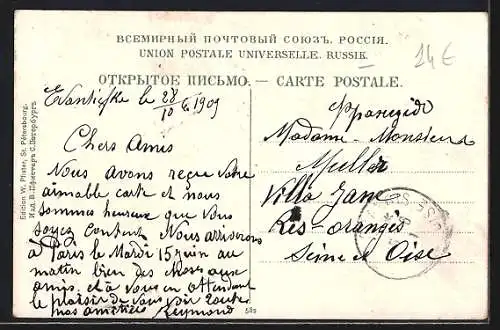 ВСЕМІРНЫЙ ПОЧТОВЫЙ СОЮЗЪ. РОССІЯ.
UNION POSTALE UNIVERSELLE. RUSSIE.
24€
ОТКРЫТОЕ ПИСЬМО. — CARTE POSTALE.
le 28/10 6 1909
Chers Amis
Nous avons reçue votre
aimable carte et nous
sommes heureux que vous
soyez content Nous arriverons
à Paris le Mardi 15 juin au
matin bien des choses aux
amis. et à vous en attendant
le plaisir de vous voir toutes
nos amitiés Reymond
Франція
Madame - Monsieur
Muller
Villa Jane
Les-oranges
Seine et Oise
Edition W. Pfister, St. Pétersbourg.
Изд. В. Пфистеръ С. Петербургъ.